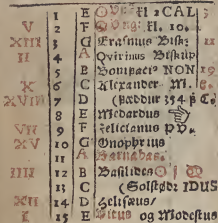 1 E CAL 3
V 2 F H. 10.
XIII 3 G Erasmus Bisk:
II 4 A Qvirinus Biskup
5 B Bonifaci9 NON 19
X 6 C Alexander M.
XVIII 7 D (Fæddur 354 p C.
8 E Medardus
VII 9 F Felicianus
XV 10 G Onophrius
11 A Barnabas.
IIII 12 B Basilides
13 C (Solstød: IDUS
XII 14 D Helisæus/
I 15 E Vitus og Modestus